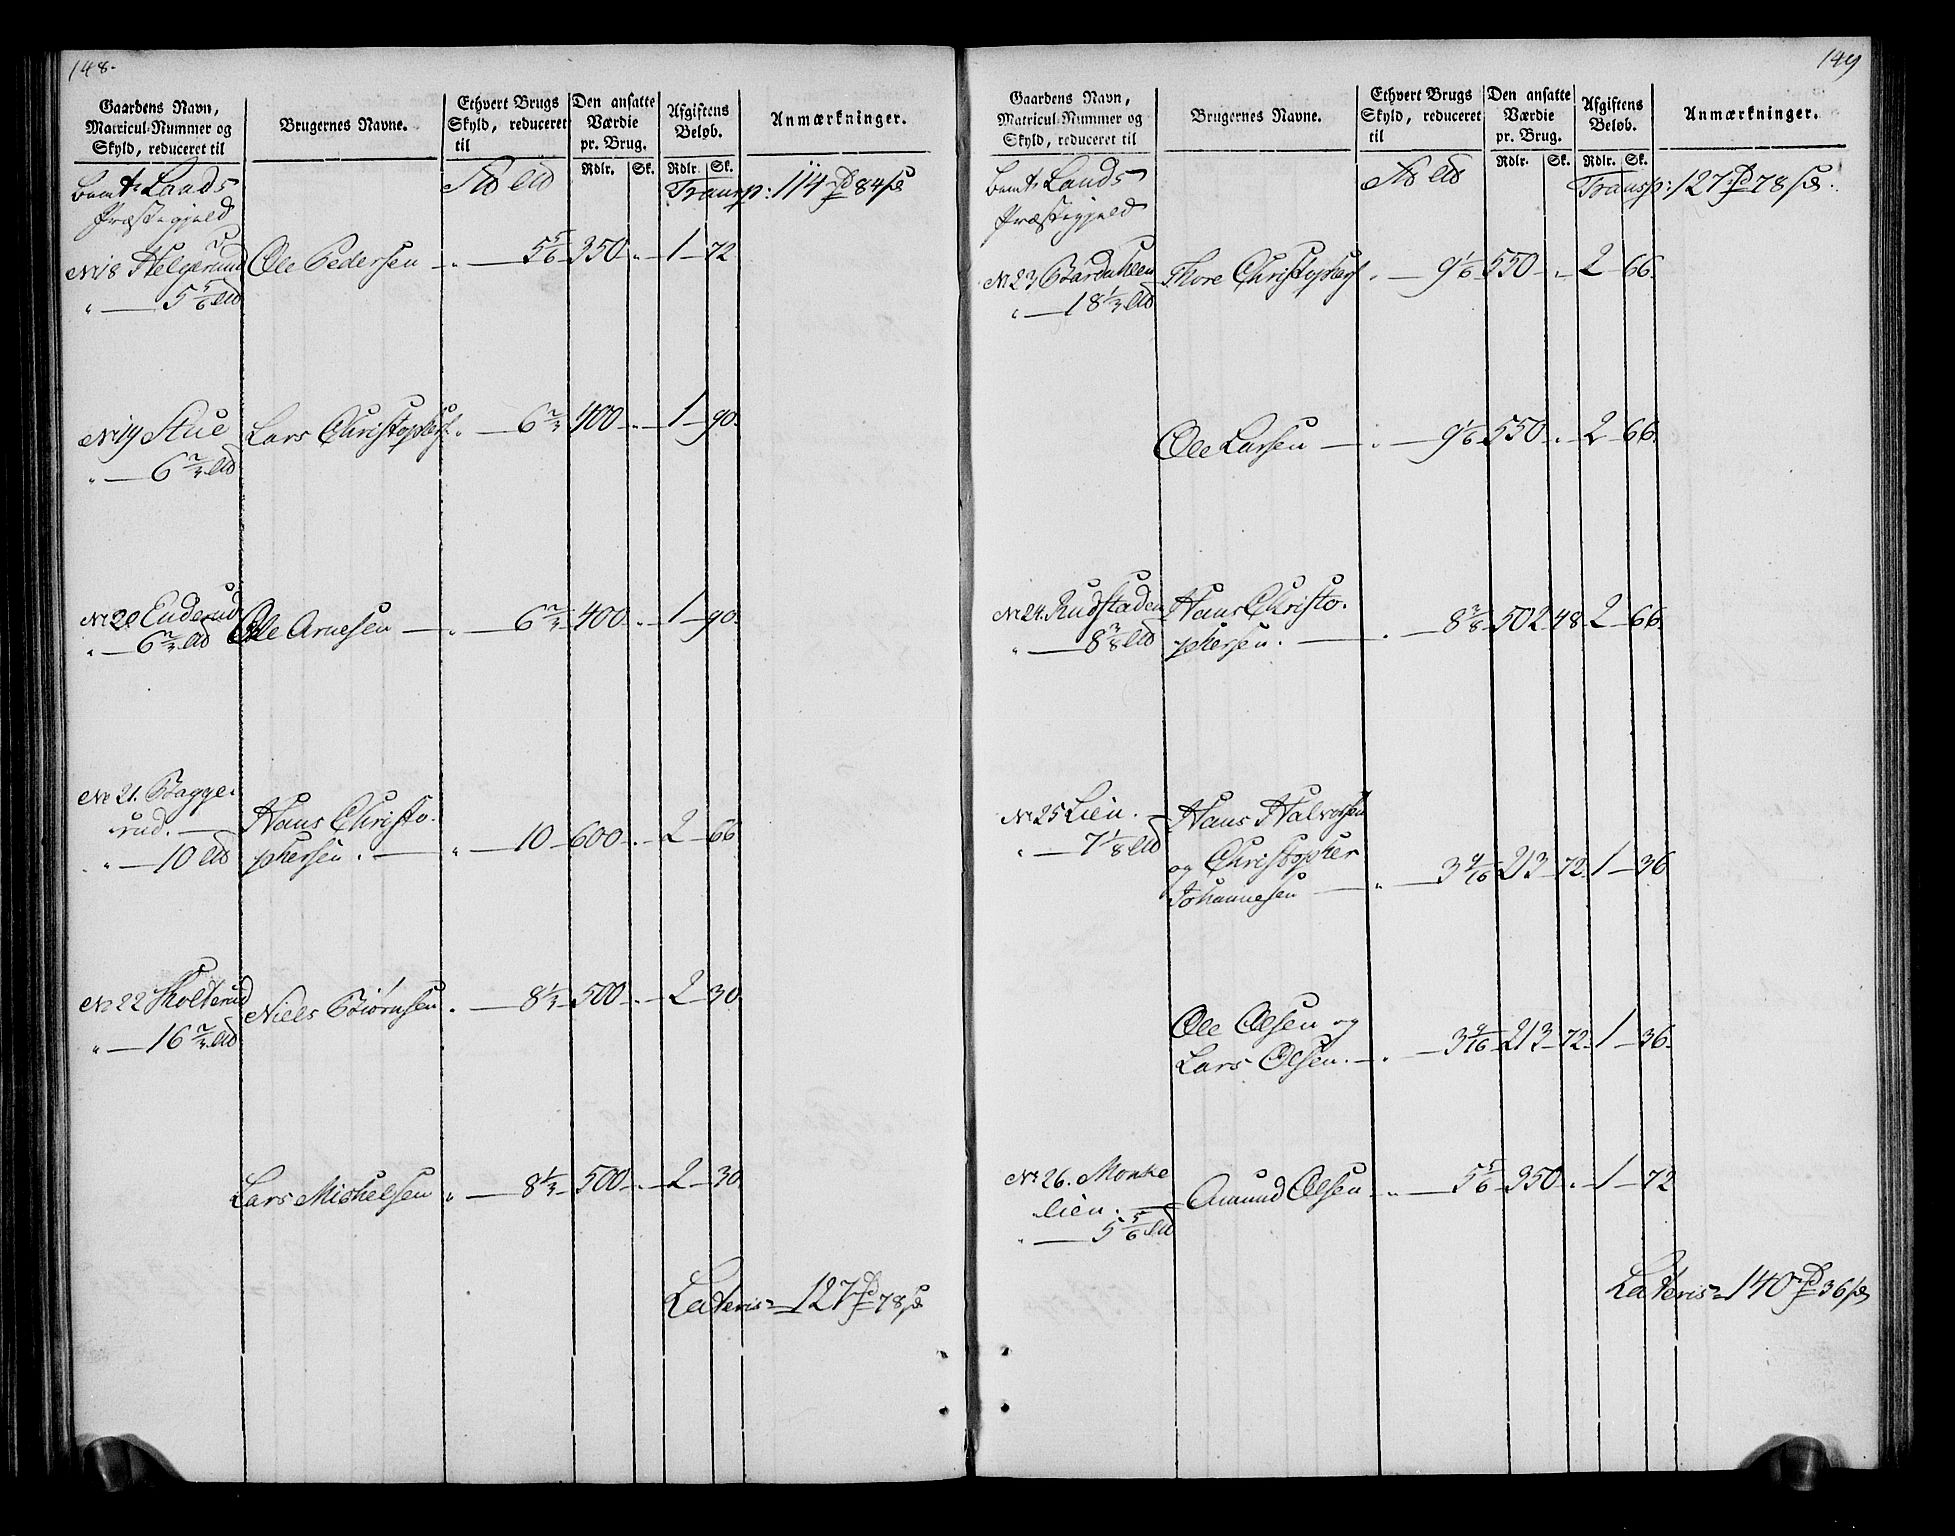 148.
Gaardens Navn, Matricul-Nummer og Skyld, reduceret til
Brugernes Navne.
Ethvert Brugs Skyld, reduceret til
Den ansatte Værdie pr. Brug.
Afgiftens Beløb.
Anmærkninger.
Rdlr. Sk. Rdlr. Sk.
Lands Transp: 114 84
Præstegjeld
No 18 Helgerund Ole Pedersen 5 5/6 350 1 72
5 5/6
No 19 Stue Lars Christophers. 6 2/3 400 1 90
6 2/3
No 20 Enderud Ole Arnesen 6 2/3 400 1 90
6 2/3
No 21. Bagge-
rud. Hans Christo-
10 phersen. 10 600 2 66
No 22 Skolterud Niels Biørnsen 8 1/3 500 2 30
16 2/3
Lars Michelsen 8 1/3 500 2 30
Lateris 127 78
149
Gaardens Navn, Matricul-Nummer og Skyld, reduceret til
Brugernes Navne.
Ethvert Brugs Skyld, reduceret til
Den ansatte Værdie pr. Brug.
Afgiftens Beløb.
Anmærkninger.
Rdlr. Sk. Rdlr. Sk.
Lands Transp: 127 78
Præstegjeld
No 23 Thore Christophers. 9 1/6 550 2 66
18 1/3
Ole Larsen 9 1/6 550 2 66
No 24. Rudstaden Hans Christo-
8 3/8 phersen. 8 3/8 502 48 2 66
No 25 Lien. Hans Halvorsen
7 1/8 og Christopher
Johannesen 3 9/16 213 72 1 36
Ole Olsen og
Lars Olsen. 3 9/16 213 72 1 36
No 26. Monke
lien. Amund Olsen 5 5/6 350 1 72
5 5/6
Lateris 140 36